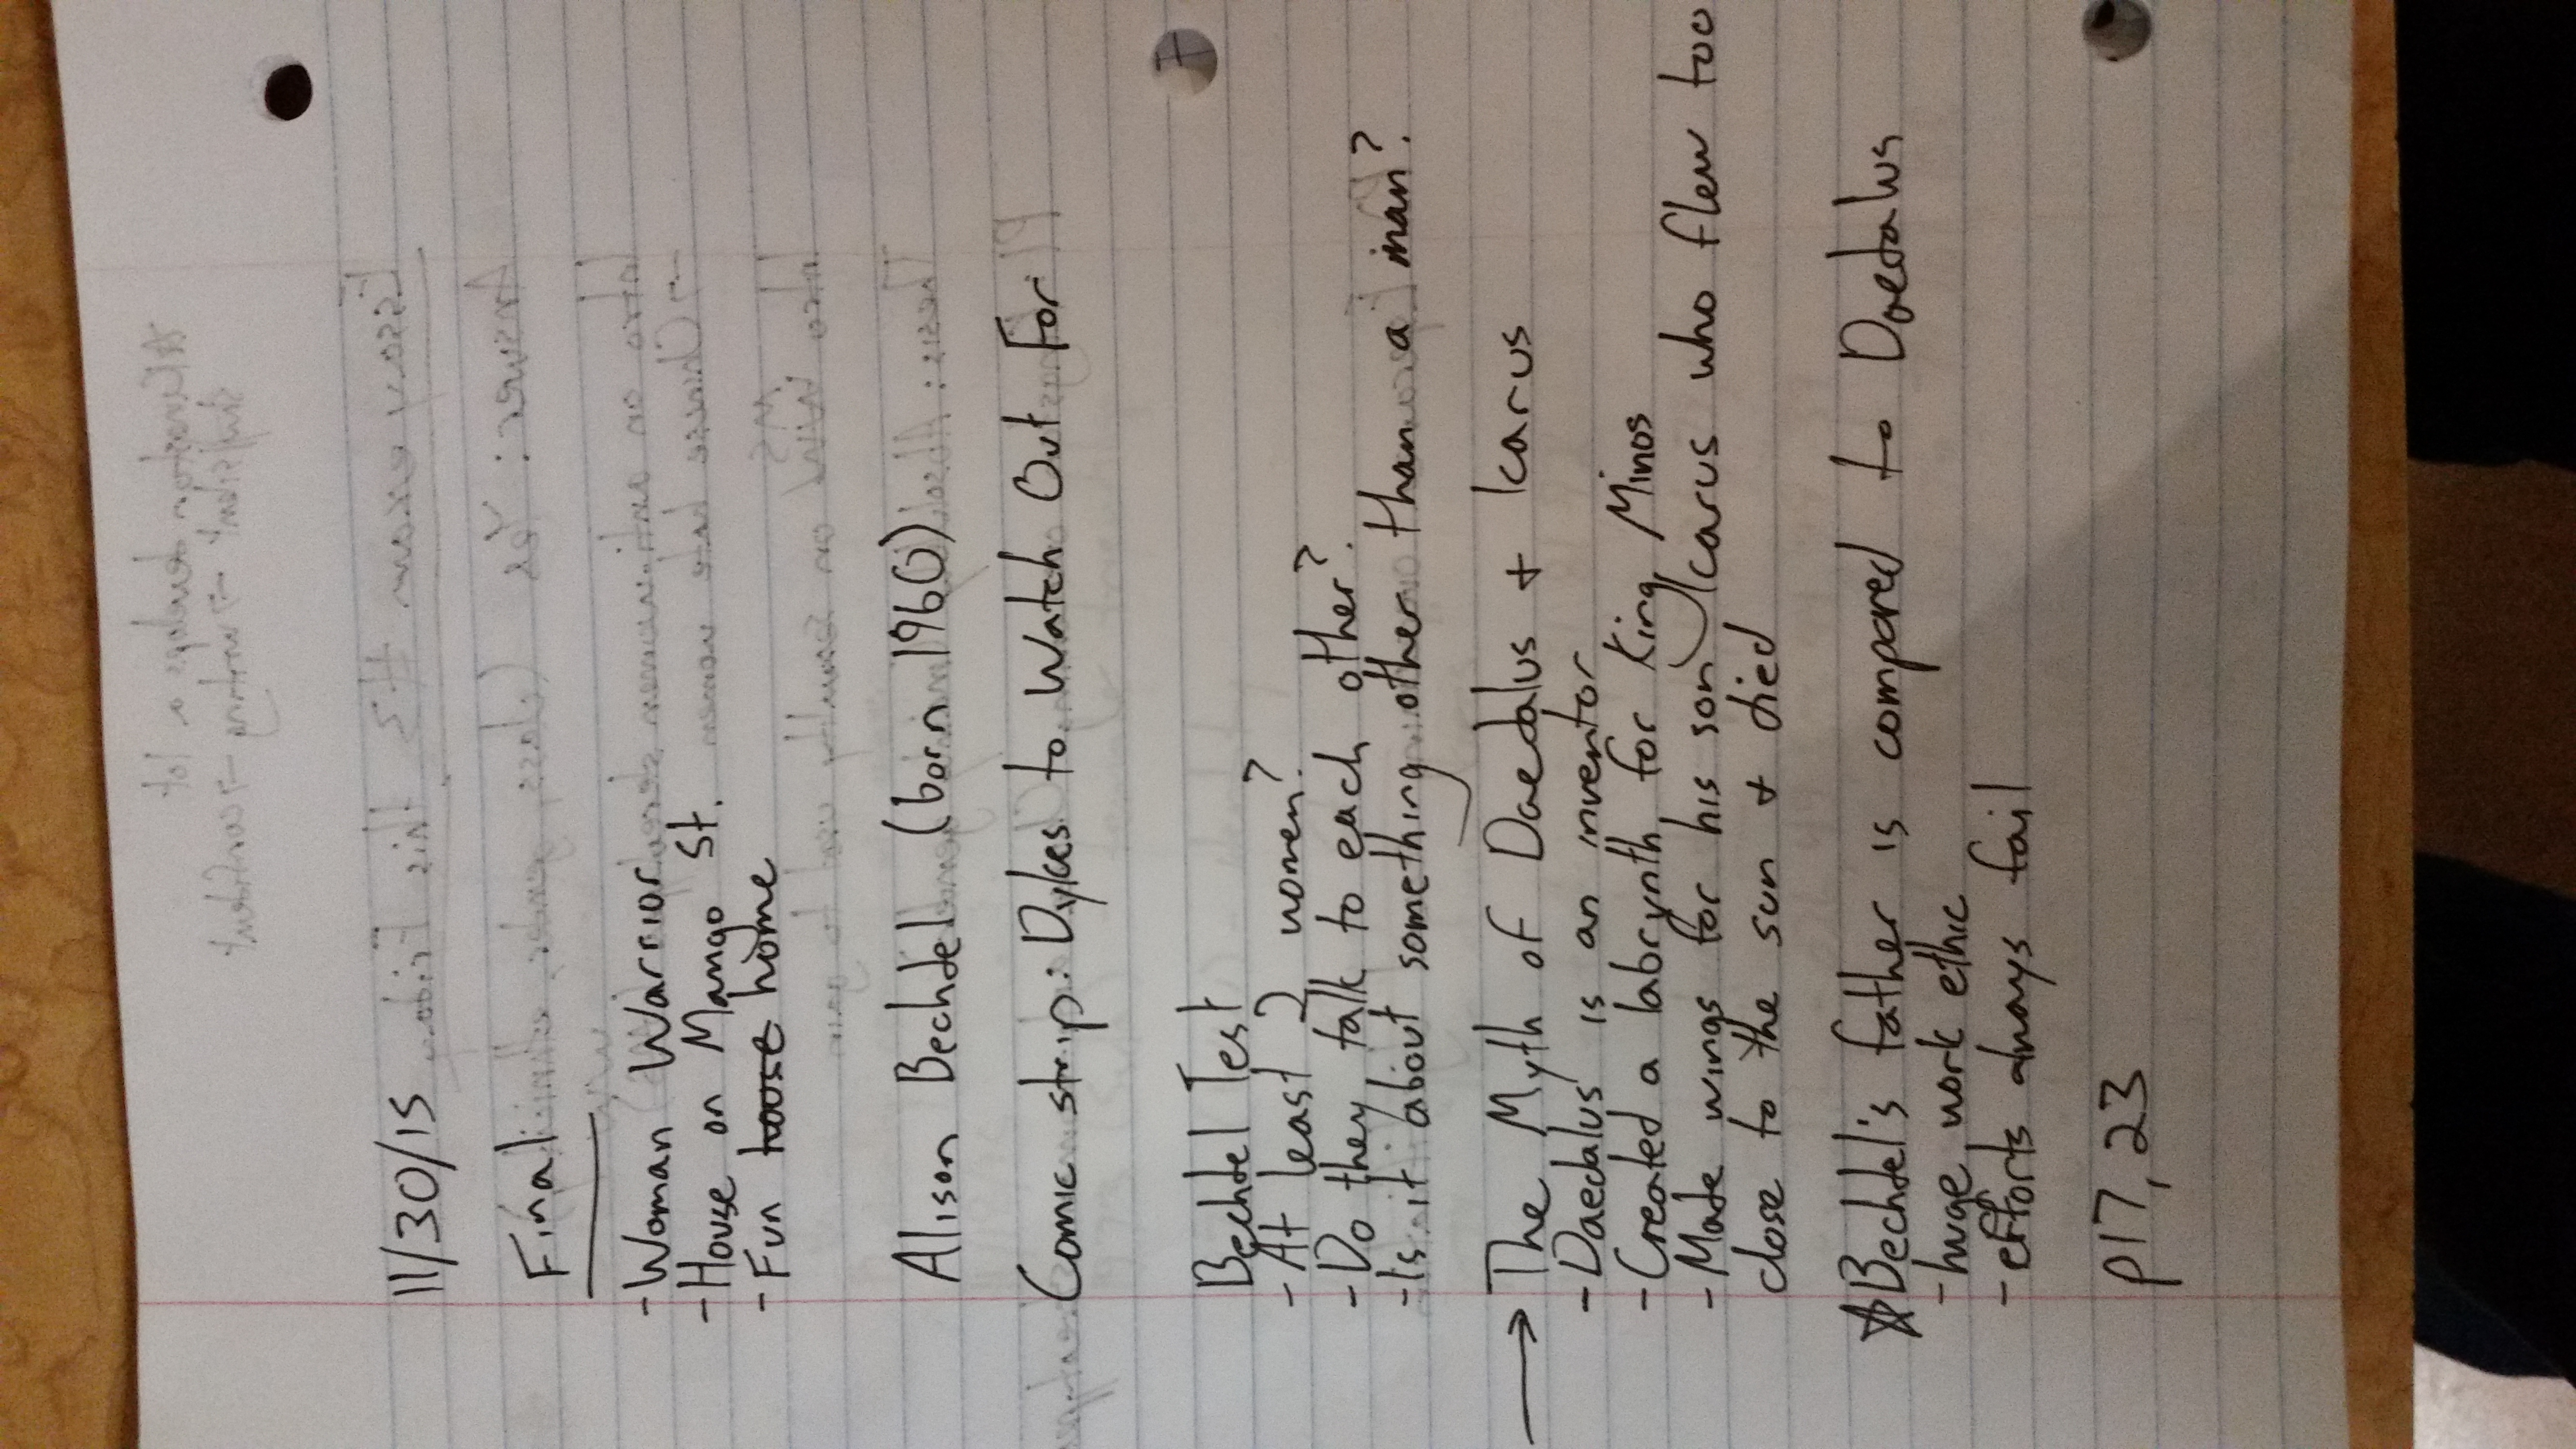 11/30/15
Final
- Woman Warrior
- House on Mango St.
- Fun house home
Alison Bechdel (born 1960)
Comic strip: Dykes to Watch Out For
Bechdel Test
- At least 2 women?
- Do they talk to each other?
- Is it about something other than a man?
→ The Myth of Daedalus + Icarus
- Daedalus is an inventor
- Created a labrynth for King Minos
- Made wings for his son Icarus who flew too
close to the sun + died
☆ Bechdel's father is compared to Daedalus
- huge work ethic
- efforts always fail
p17, 23